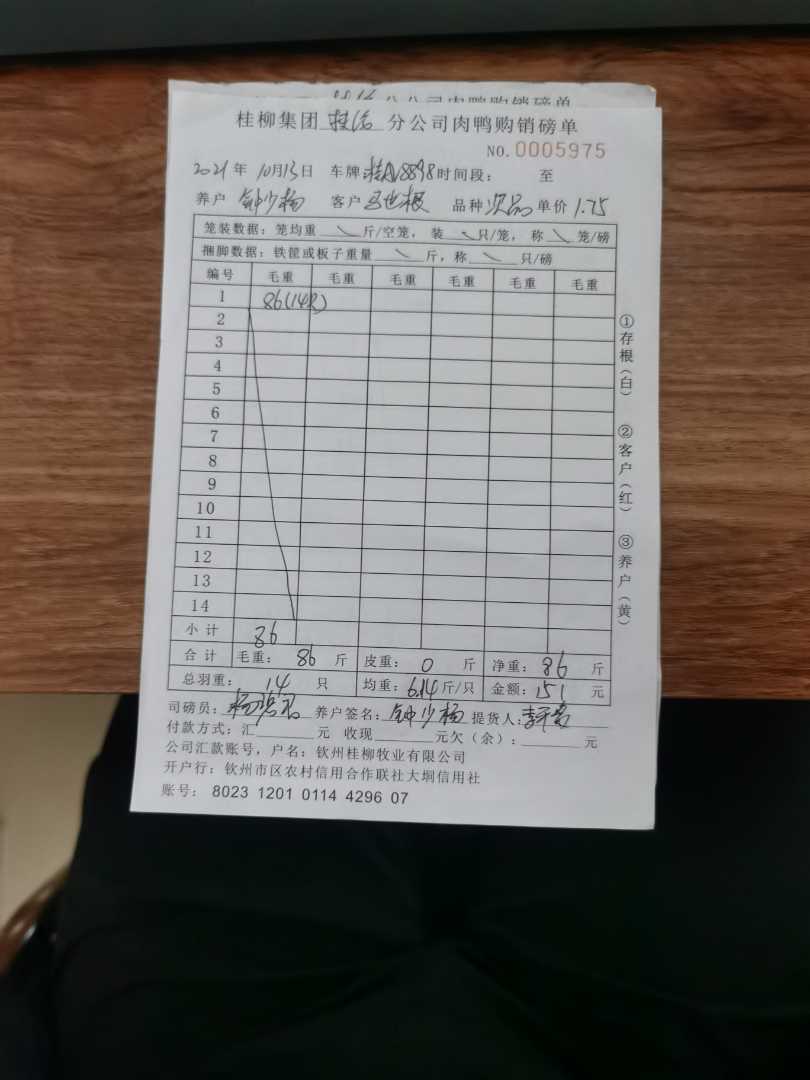 桂柳集团 分公司肉鸭购销磅单
NO.0005975
2021年10月13日 车牌 8898 时间段： 至
养户 钟少杨 客户 马世根 品种 次品 单价 1.75
笼装数据：笼均重 斤/空笼，装 只/笼，称 笼/磅
捆脚数据：铁筐或板子重量 斤，称 只/磅
编号 毛重 毛重 毛重 毛重 毛重 毛重
1 86(14只)
2
3
4
5
6
7
8
9
10
11
12
13
14
小计 86
合计 毛重：86 斤 皮重：0 斤 净重：86 斤
总羽重：14 只 均重：6.14 斤/只 金额：151 元
司磅员： 养户签名：钟少杨 提货人：
付款方式：汇 元 收现 元欠（余）： 元
公司汇款账号，户名：钦州桂柳牧业有限公司
开户行：钦州市区农村信用合作联社大垌信用社
账号：8023 1201 0114 4296 07
①存根（白）
②客户（红）
③养户（黄）